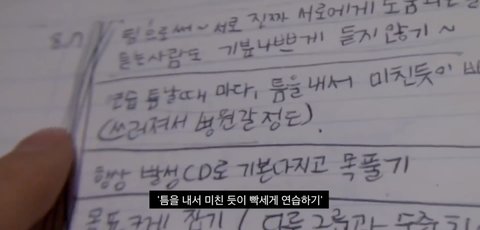 팀으로써~ 서로 진짜 서로에게 도움되는
듣는사람도 기분나쁘게 듣지 않기~
연습 틈날때 마다, 틈을 내서 미친듯이
(쓰러져서 병원갈 정도).
항상 발성CD로 기본다지고 목풀기
'틈을 내서 미친 듯이 빡세게 연습하기'
목표 크게 잡기